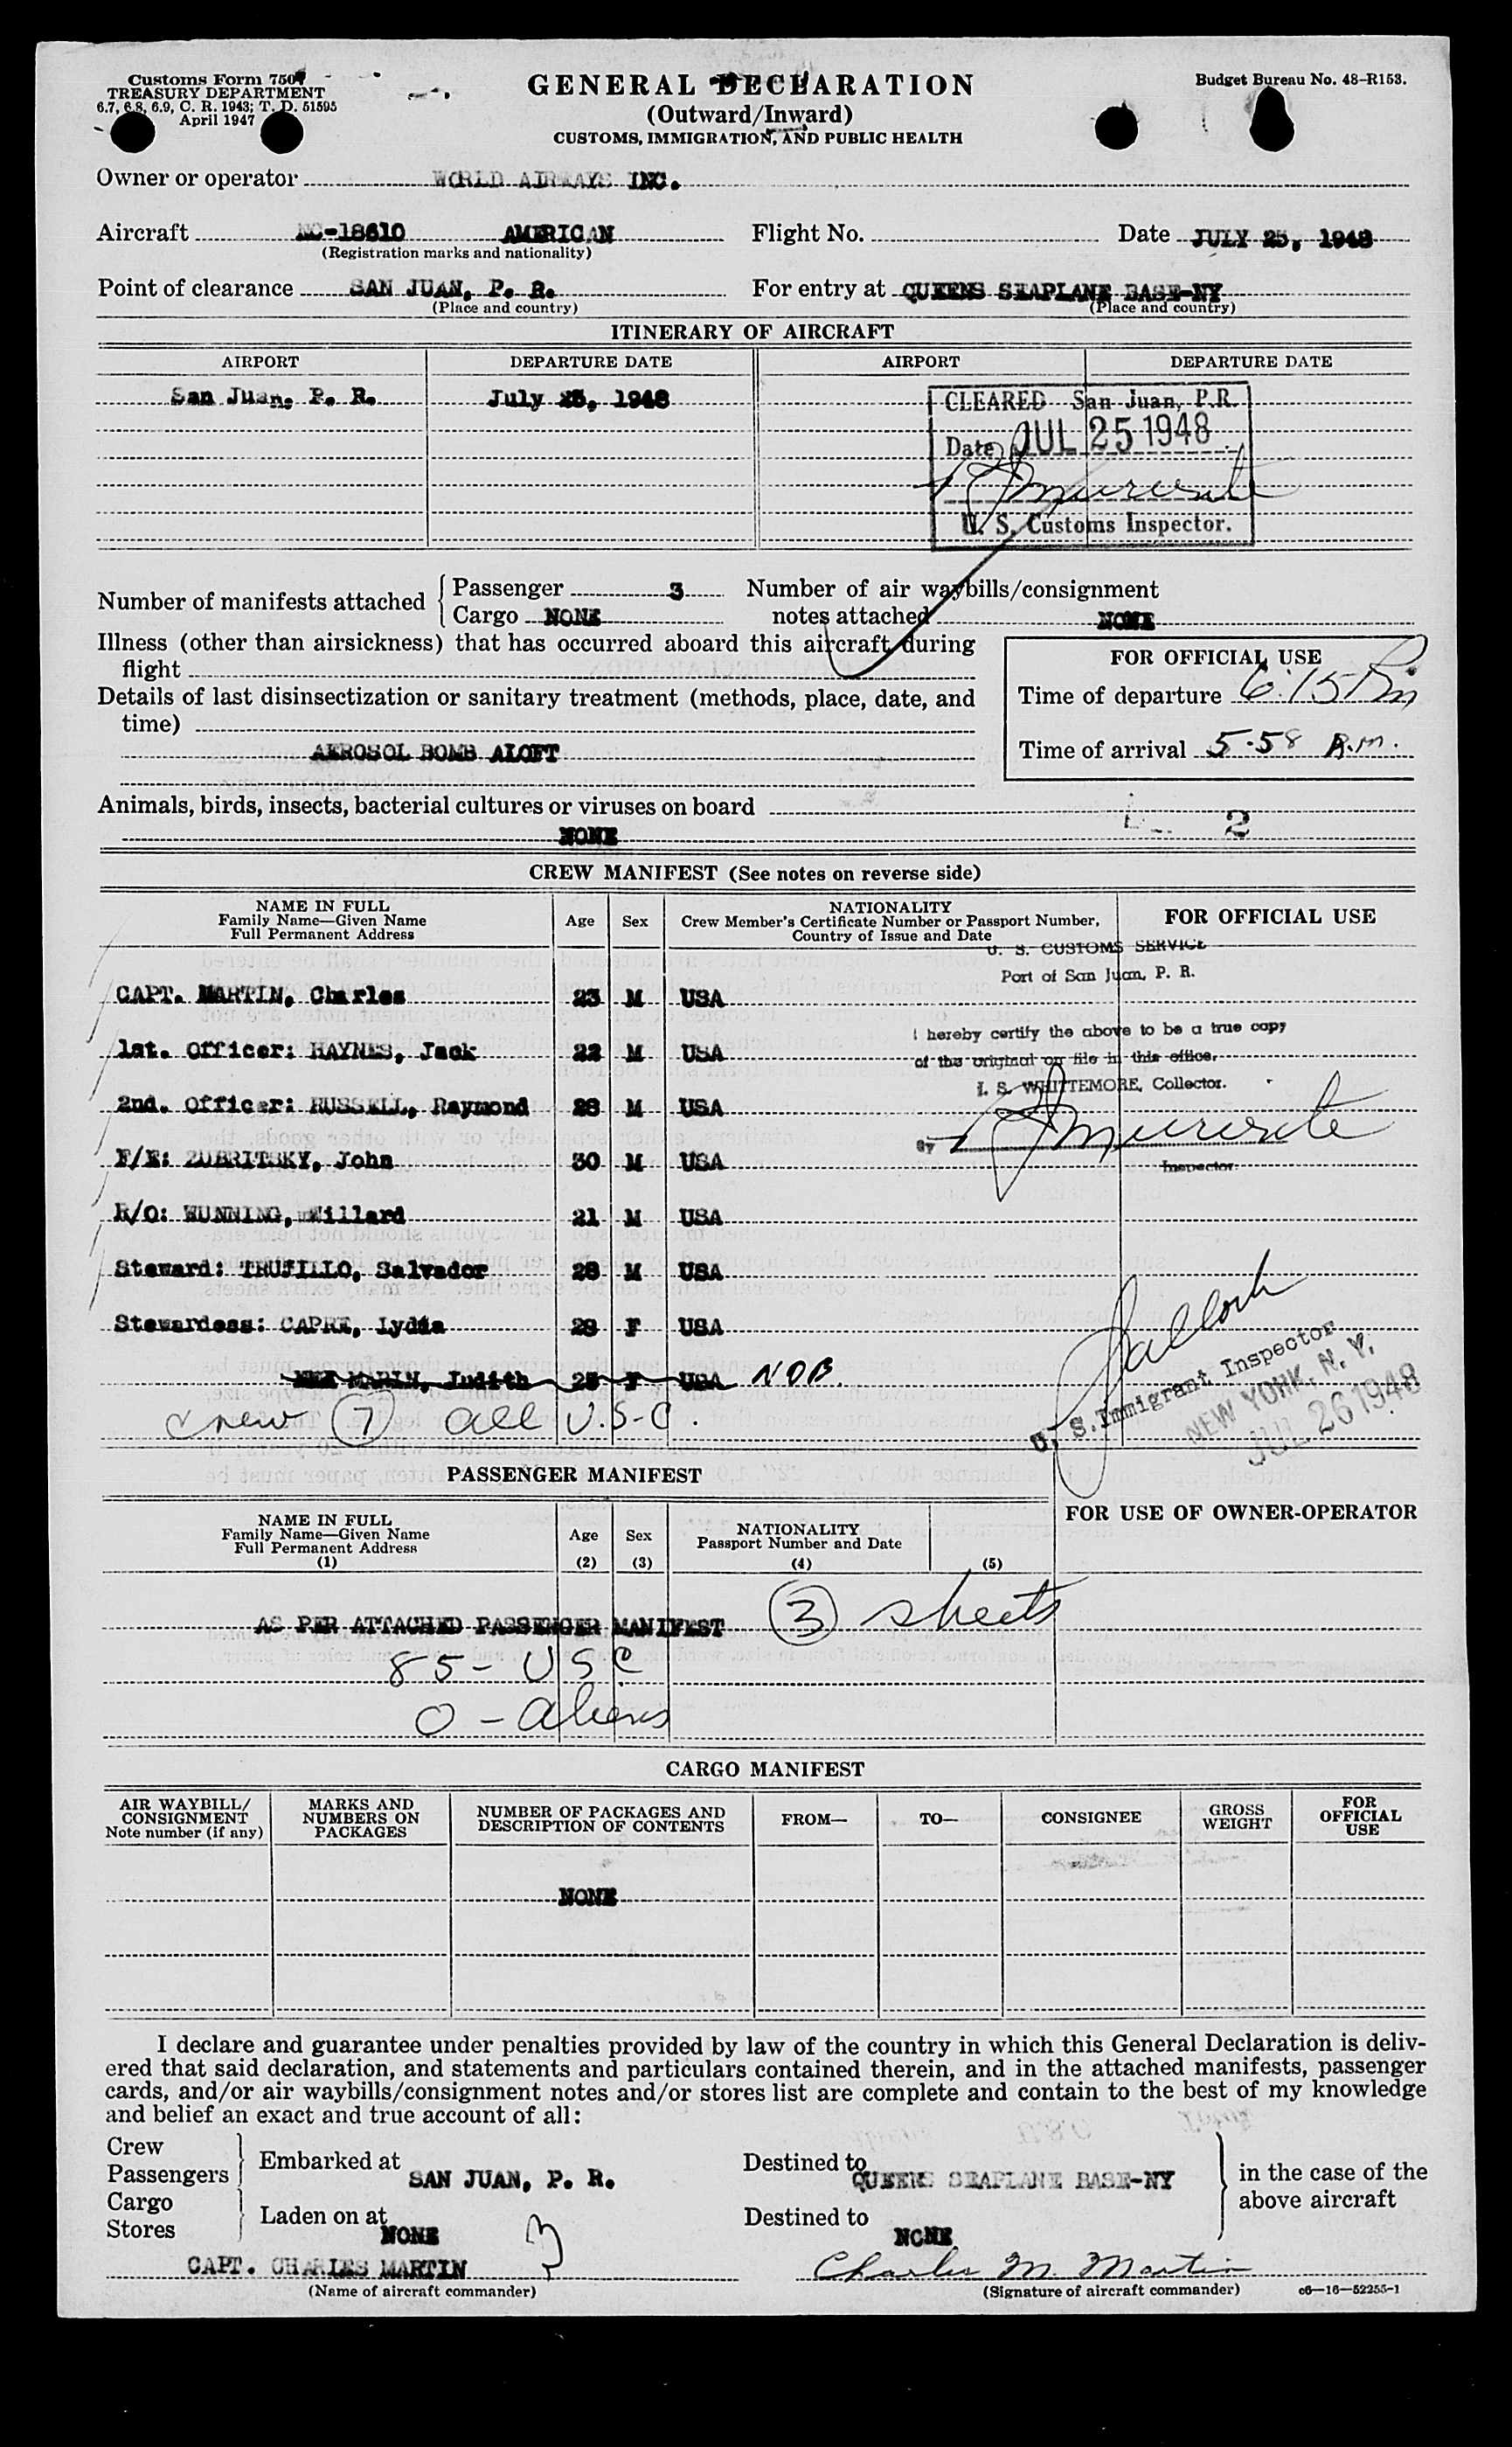 Customs Form 7507
TREASURY DEPARTMENT
6.7, 6.8, 6.9, C. R. 1943; T. D. 51595
April 1947
GENERAL DECLARATION
(Outward/Inward)
CUSTOMS, IMMIGRATION, AND PUBLIC HEALTH
Budget Bureau No. 48-R153.
Owner or operator WORLD AIRWAYS INC.
Aircraft NC-18610 AMERICAN Flight No. Date JULY 25, 1948
(Registration marks and nationality)
Point of clearance SAN JUAN, P. R. For entry at QUEENS SEAPLANE BASE-NY
(Place and country) (Place and country)
ITINERARY OF AIRCRAFT
AIRPORT DEPARTURE DATE AIRPORT DEPARTURE DATE
San Juan, P. R. July 25, 1948
CLEARED San Juan, P.R.
Date JUL 25 1948
U. S. Customs Inspector.
Number of manifests attached Passenger 3 Cargo NONE
Number of air waybills/consignment notes attached NONE
Illness (other than airsickness) that has occurred aboard this aircraft during
flight
Details of last disinsectization or sanitary treatment (methods, place, date, and
time)
AEROSOL BOMB ALOFT
FOR OFFICIAL USE
Time of departure 6:15 Pm
Time of arrival 5-58 A.m.
Animals, birds, insects, bacterial cultures or viruses on board
NONE
2
CREW MANIFEST (See notes on reverse side)
NAME IN FULL
Family Name—Given Name
Full Permanent Address
Age
Sex
NATIONALITY
Crew Member's Certificate Number or Passport Number,
Country of Issue and Date
FOR OFFICIAL USE
U. S. CUSTOMS SERVICE
Port of San Juan, P. R.
CAPT. MARTIN, Charles 23 M USA
I hereby certify the above to be a true copy
1st. Officer: HAYNES, Jack 22 M USA
of the original on file in this office.
I. S. WHITTEMORE, Collector.
2nd. Officer: RUSSELL, Raymond 28 M USA
By
Inspector.
F/E: ZUBRITSKY, John 30 M USA
R/O: WUNNING, Willard 21 M USA
Steward: TRUJILLO, Salvador 28 M USA
Stewardess: CAPRE, Lydia 29 F USA
MARLN, Judith 25 F USA NOB.
Crew (7) all U.S-C.
U. S. Immigrant Inspector
NEW YORK, N. Y.
JUL 26 1948
PASSENGER MANIFEST
FOR USE OF OWNER-OPERATOR
NAME IN FULL
Family Name—Given Name
Full Permanent Address
(1)
Age
(2)
Sex
(3)
NATIONALITY
Passport Number and Date
(4)
(5)
AS PER ATTACHED PASSENGER MANIFEST (3) sheets
85 - USC
0 - aliens
CARGO MANIFEST
AIR WAYBILL/
CONSIGNMENT
Note number (if any)
MARKS AND
NUMBERS ON
PACKAGES
NUMBER OF PACKAGES AND
DESCRIPTION OF CONTENTS
FROM—
TO—
CONSIGNEE
GROSS
WEIGHT
FOR
OFFICIAL
USE
NONE
I declare and guarantee under penalties provided by law of the country in which this General Declaration is deliv-
ered that said declaration, and statements and particulars contained therein, and in the attached manifests, passenger
cards, and/or air waybills/consignment notes and/or stores list are complete and contain to the best of my knowledge
and belief an exact and true account of all:
Crew
Passengers
Embarked at SAN JUAN, P. R.
Destined to QUEENS SEAPLANE BASE-NY
Cargo
Stores
Laden on at NONE
Destined to NONE
in the case of the
above aircraft
CAPT. CHARLES MARTIN
(Name of aircraft commander)
Charles M. Martin
(Signature of aircraft commander)
c6—16—52255-1